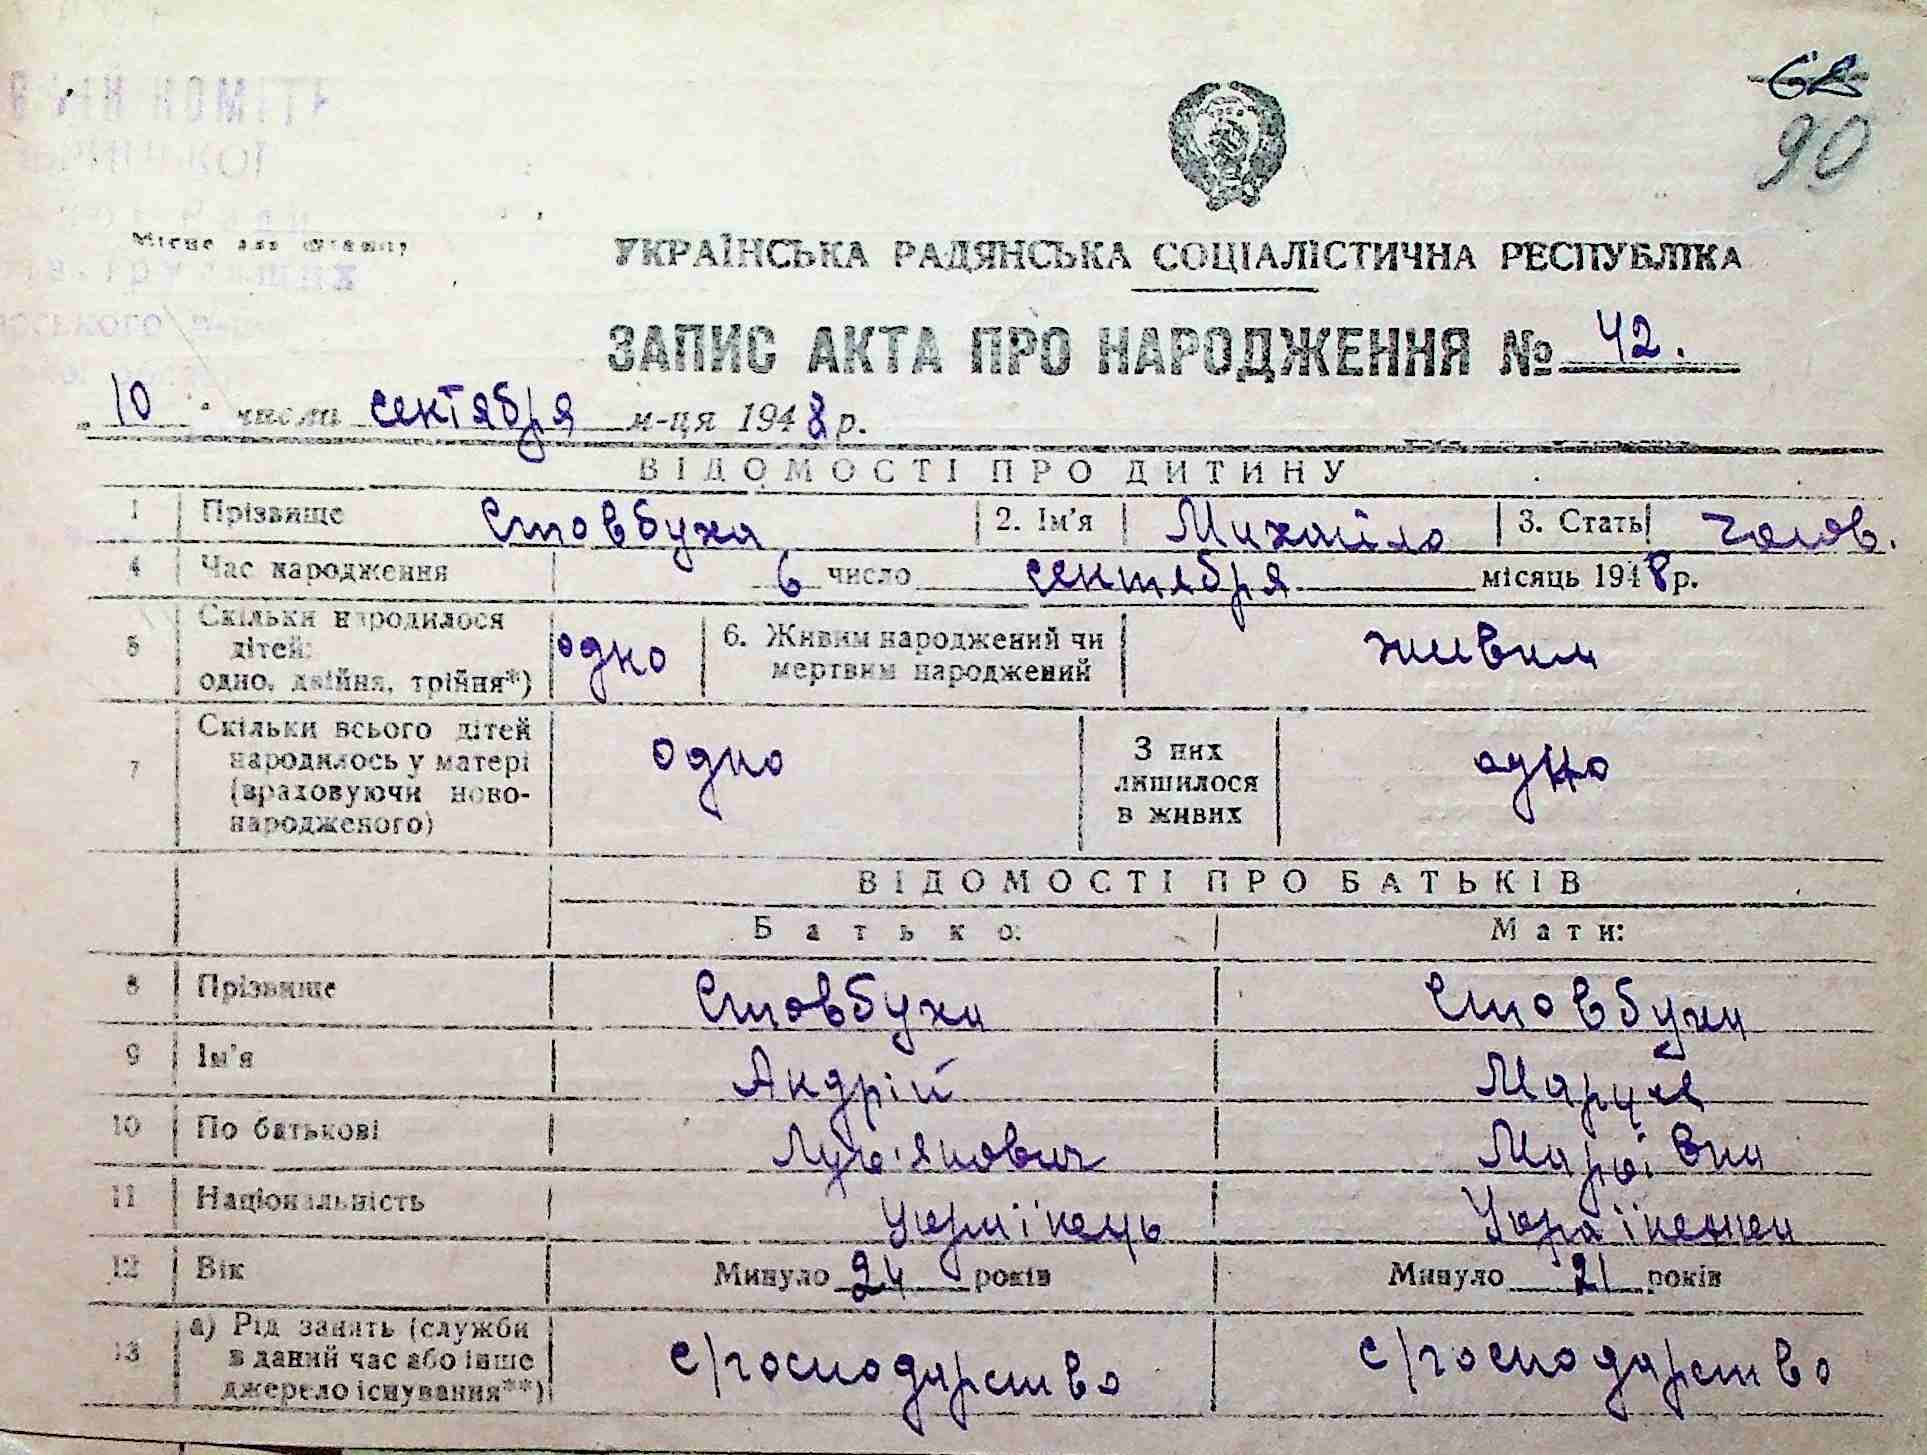 90
Місце для штампу
УКРАЇНСЬКА РАДЯНСЬКА СОЦІАЛІСТИЧНА РЕСПУБЛІКА
ЗАПИС АКТА ПРО НАРОДЖЕННЯ № 42.
10 числа сентября м-ця 1948 р.
ВІДОМОСТІ ПРО ДИТИНУ
1 Прізвище Стовбуха 2. Ім'я Михайло 3. Стать чолов.
4 Час народження 6 число сентября місяць 1948 р.
5 Скільки народилося дітей: одно, двійня, трійня*) одно 6. Живим народжений чи мертвим народжений живим
7 Скільки всього дітей народилось у матері (враховуючи ново-народженого) одно З них лишилося в живих одно
ВІДОМОСТІ ПРО БАТЬКІВ
Батько: Мати:
8 Прізвище Стовбуха Стовбуха
9 Ім'я Андрій
10 По батькові Лук'янович
11 Національність Українець Українка
12 Вік Минуло 24 років Минуло 21 років
13 а) Рід занять (служби в даний час або інше джерело існування**) с/господарство с/господарство